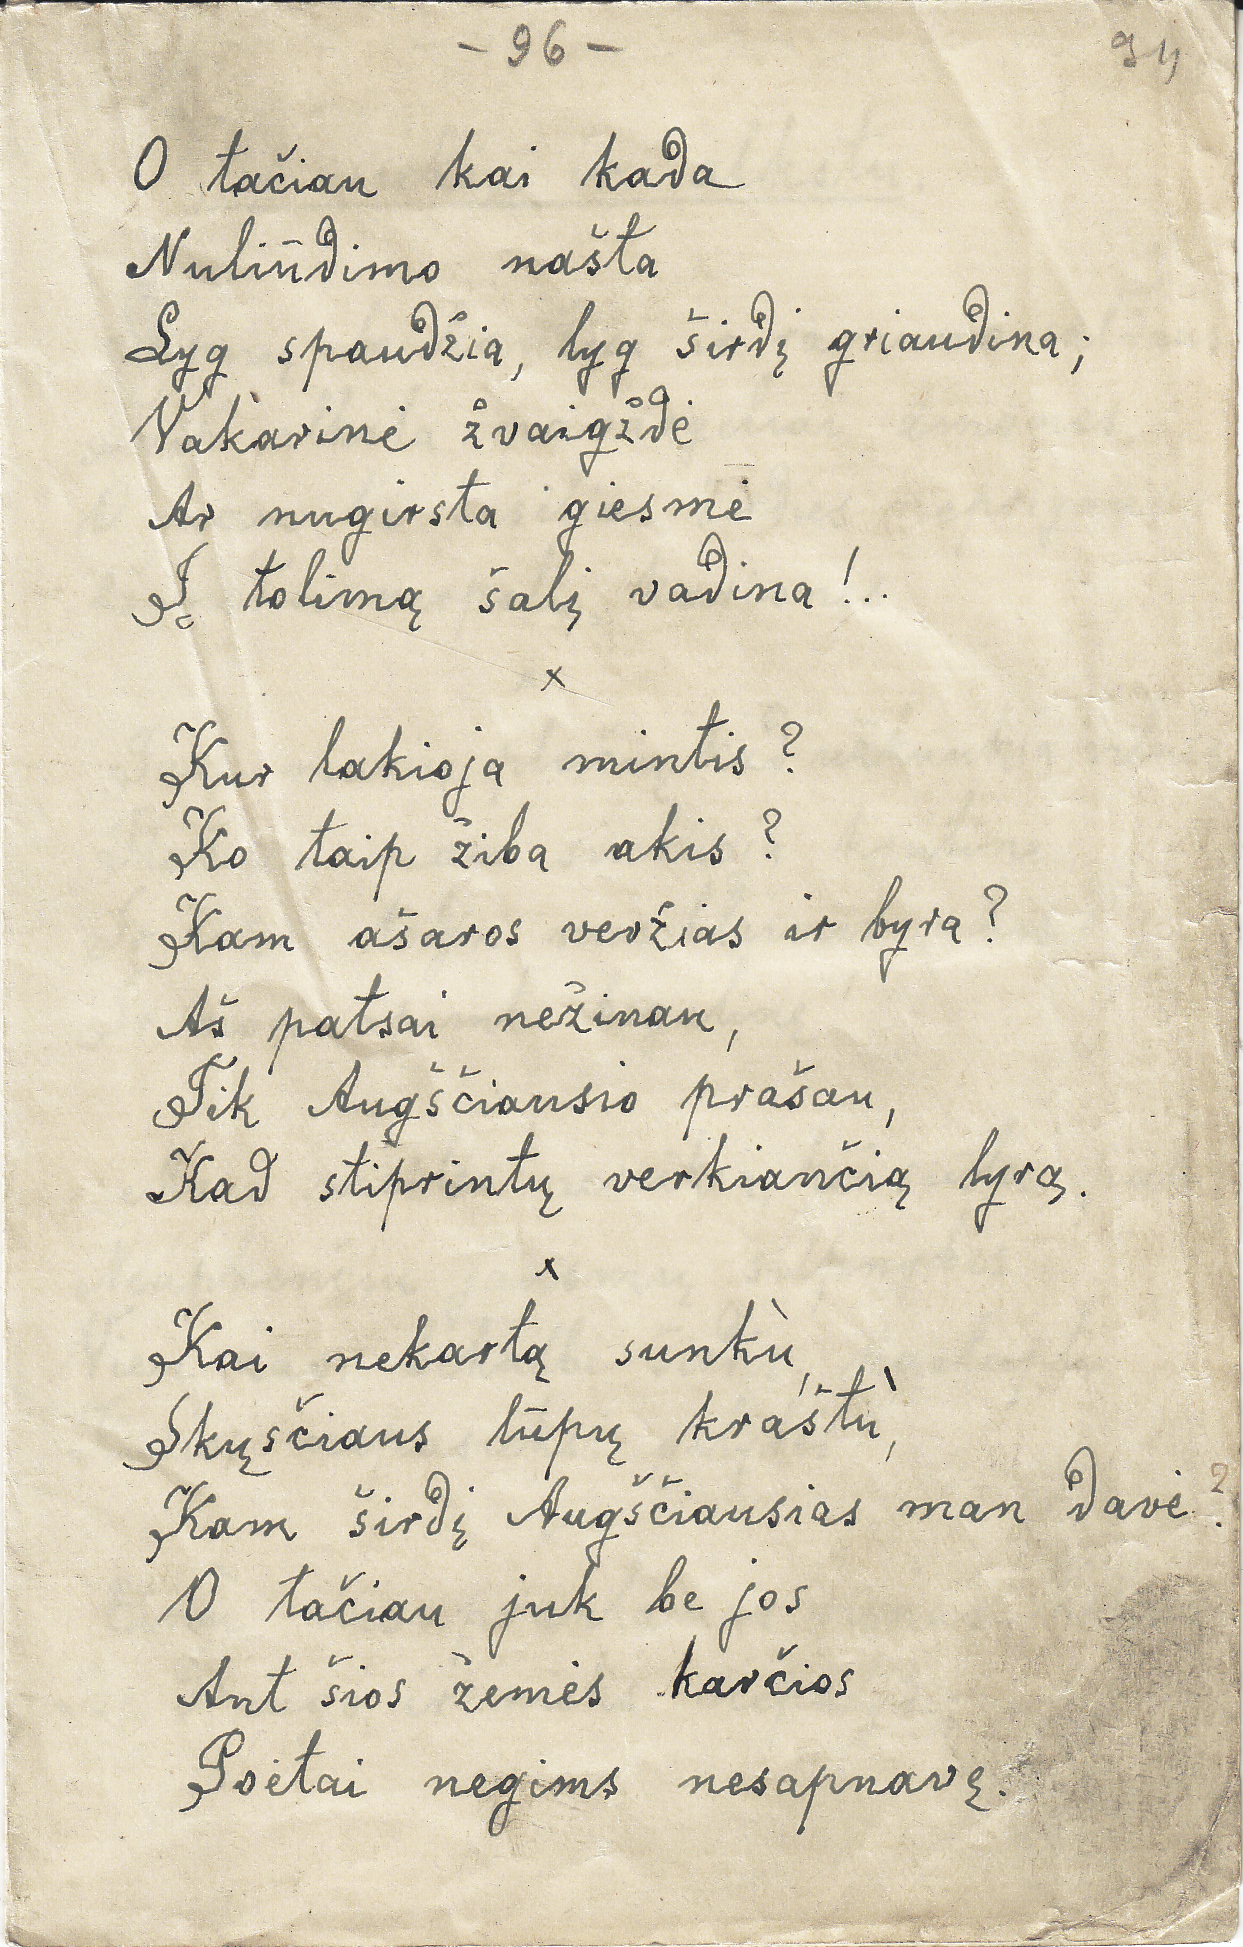 - 96 -
O tačiau kai kada
Nuliūdimo našta
Lyg spaudžia, lyg širdį griaudina;
Vakarinė žvaigždė
Ar nugirsta giesmė
Į tolimą šalį vadina!..
x
Kur lakioja mintis?
Ko taip žiba akis?
Kam ašaros veržias ir byra?
Aš patsai nežinau,
Tik Augščiausio prašau,
Kad stiprintų verkiančią lyrą.
x
Kai nekartą sunkù,
Skųsčiaus lūpų kráštù,
Kam širdį Augščiausias man davė?
O tačiau juk be jos
Ant šios žemės karčios
Poėtai negims nesapnavę.